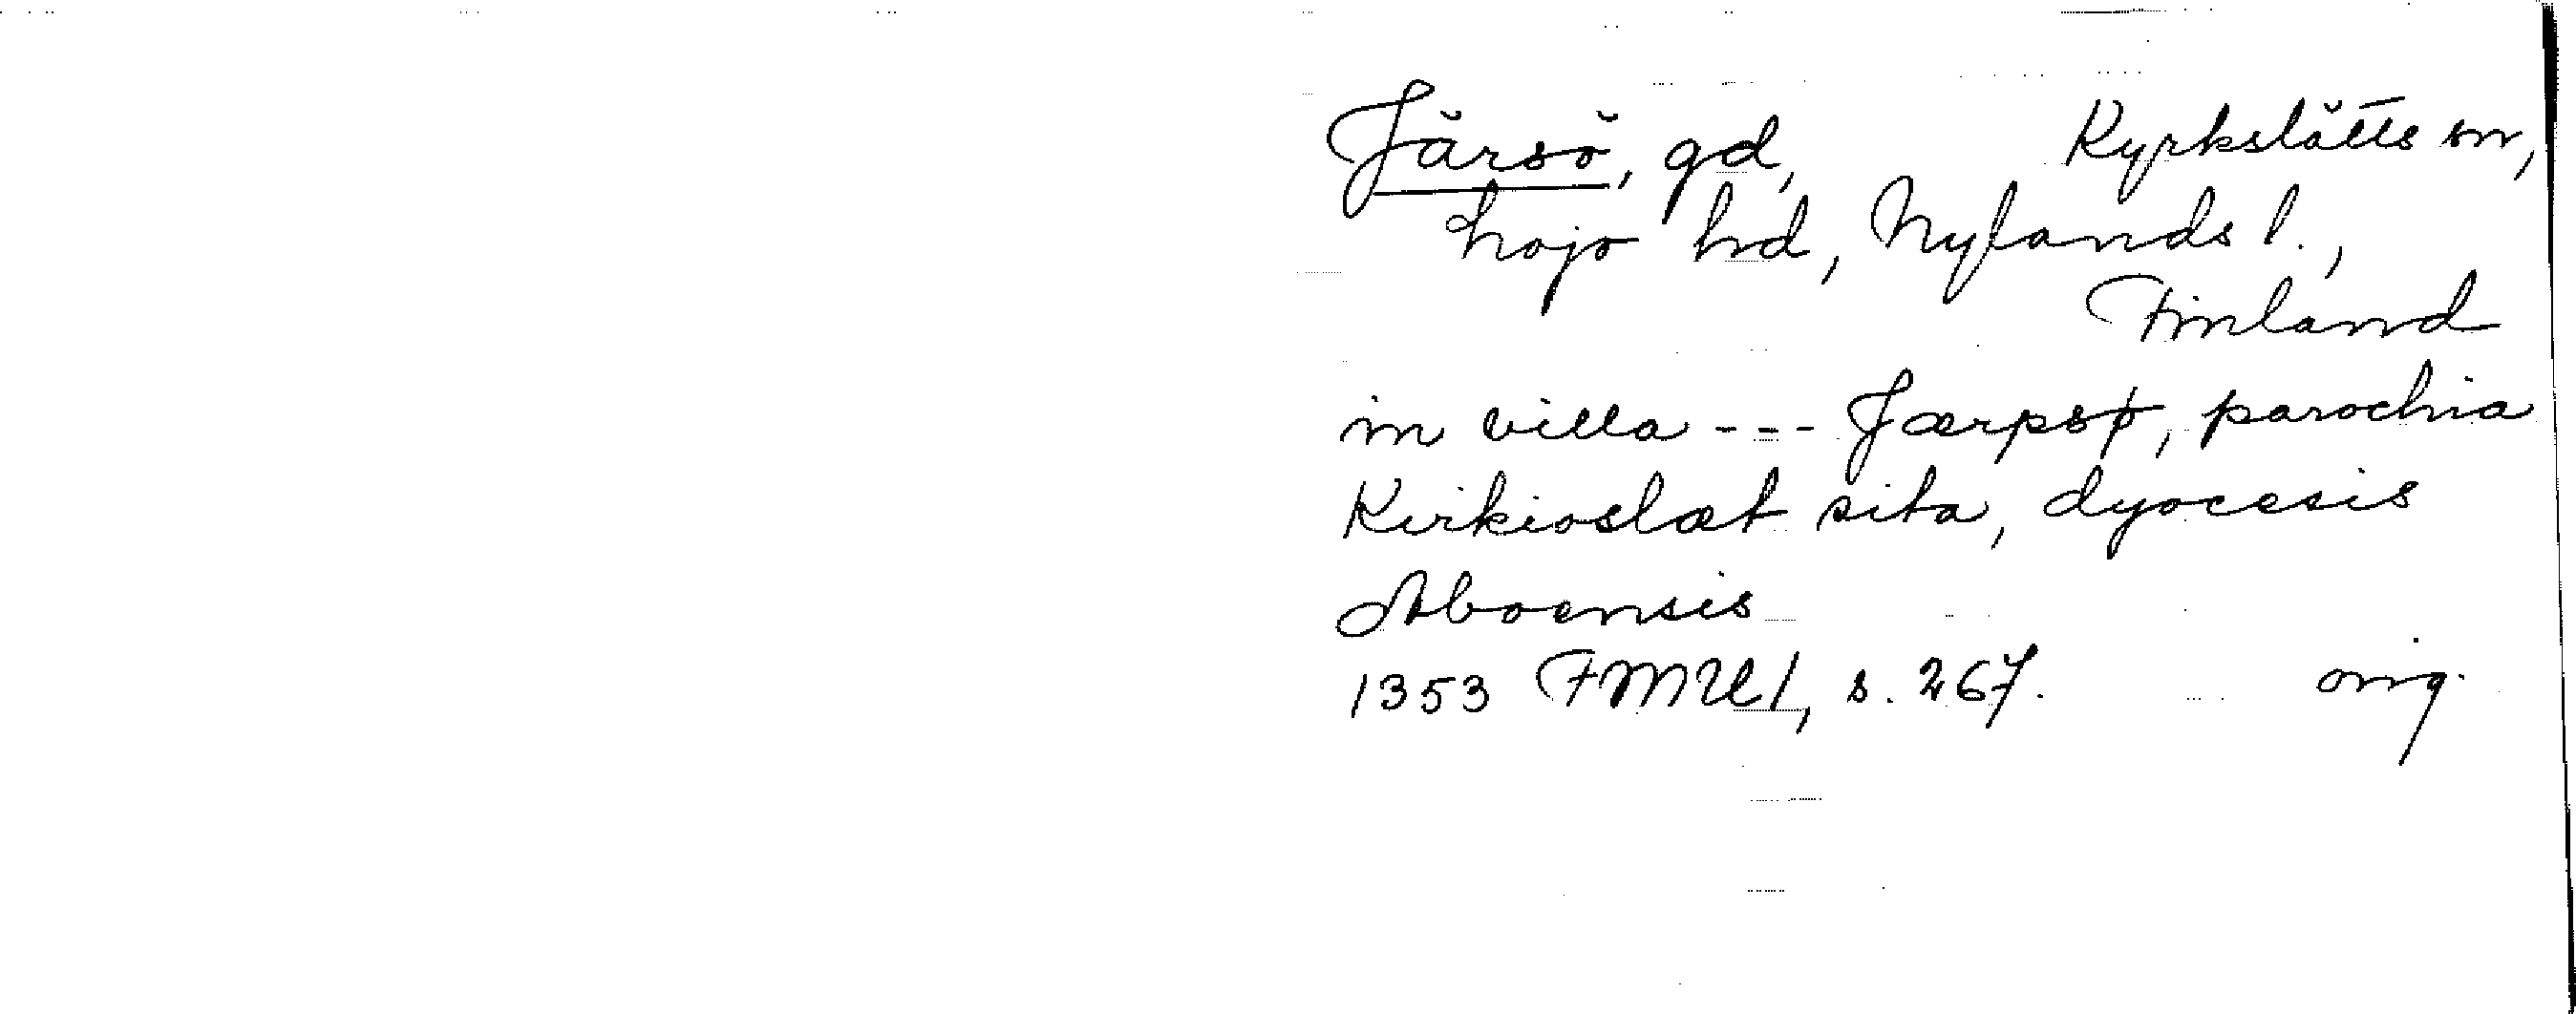 Järsö, gd, Kyrkslätts sn,
Lojo hd, Nylands l.,
Finland
in villa --- Jærpsø, parochia
Kirkioslæt sita, dyocesis
Aboensis
1353 FMU 1, s. 267. orig.